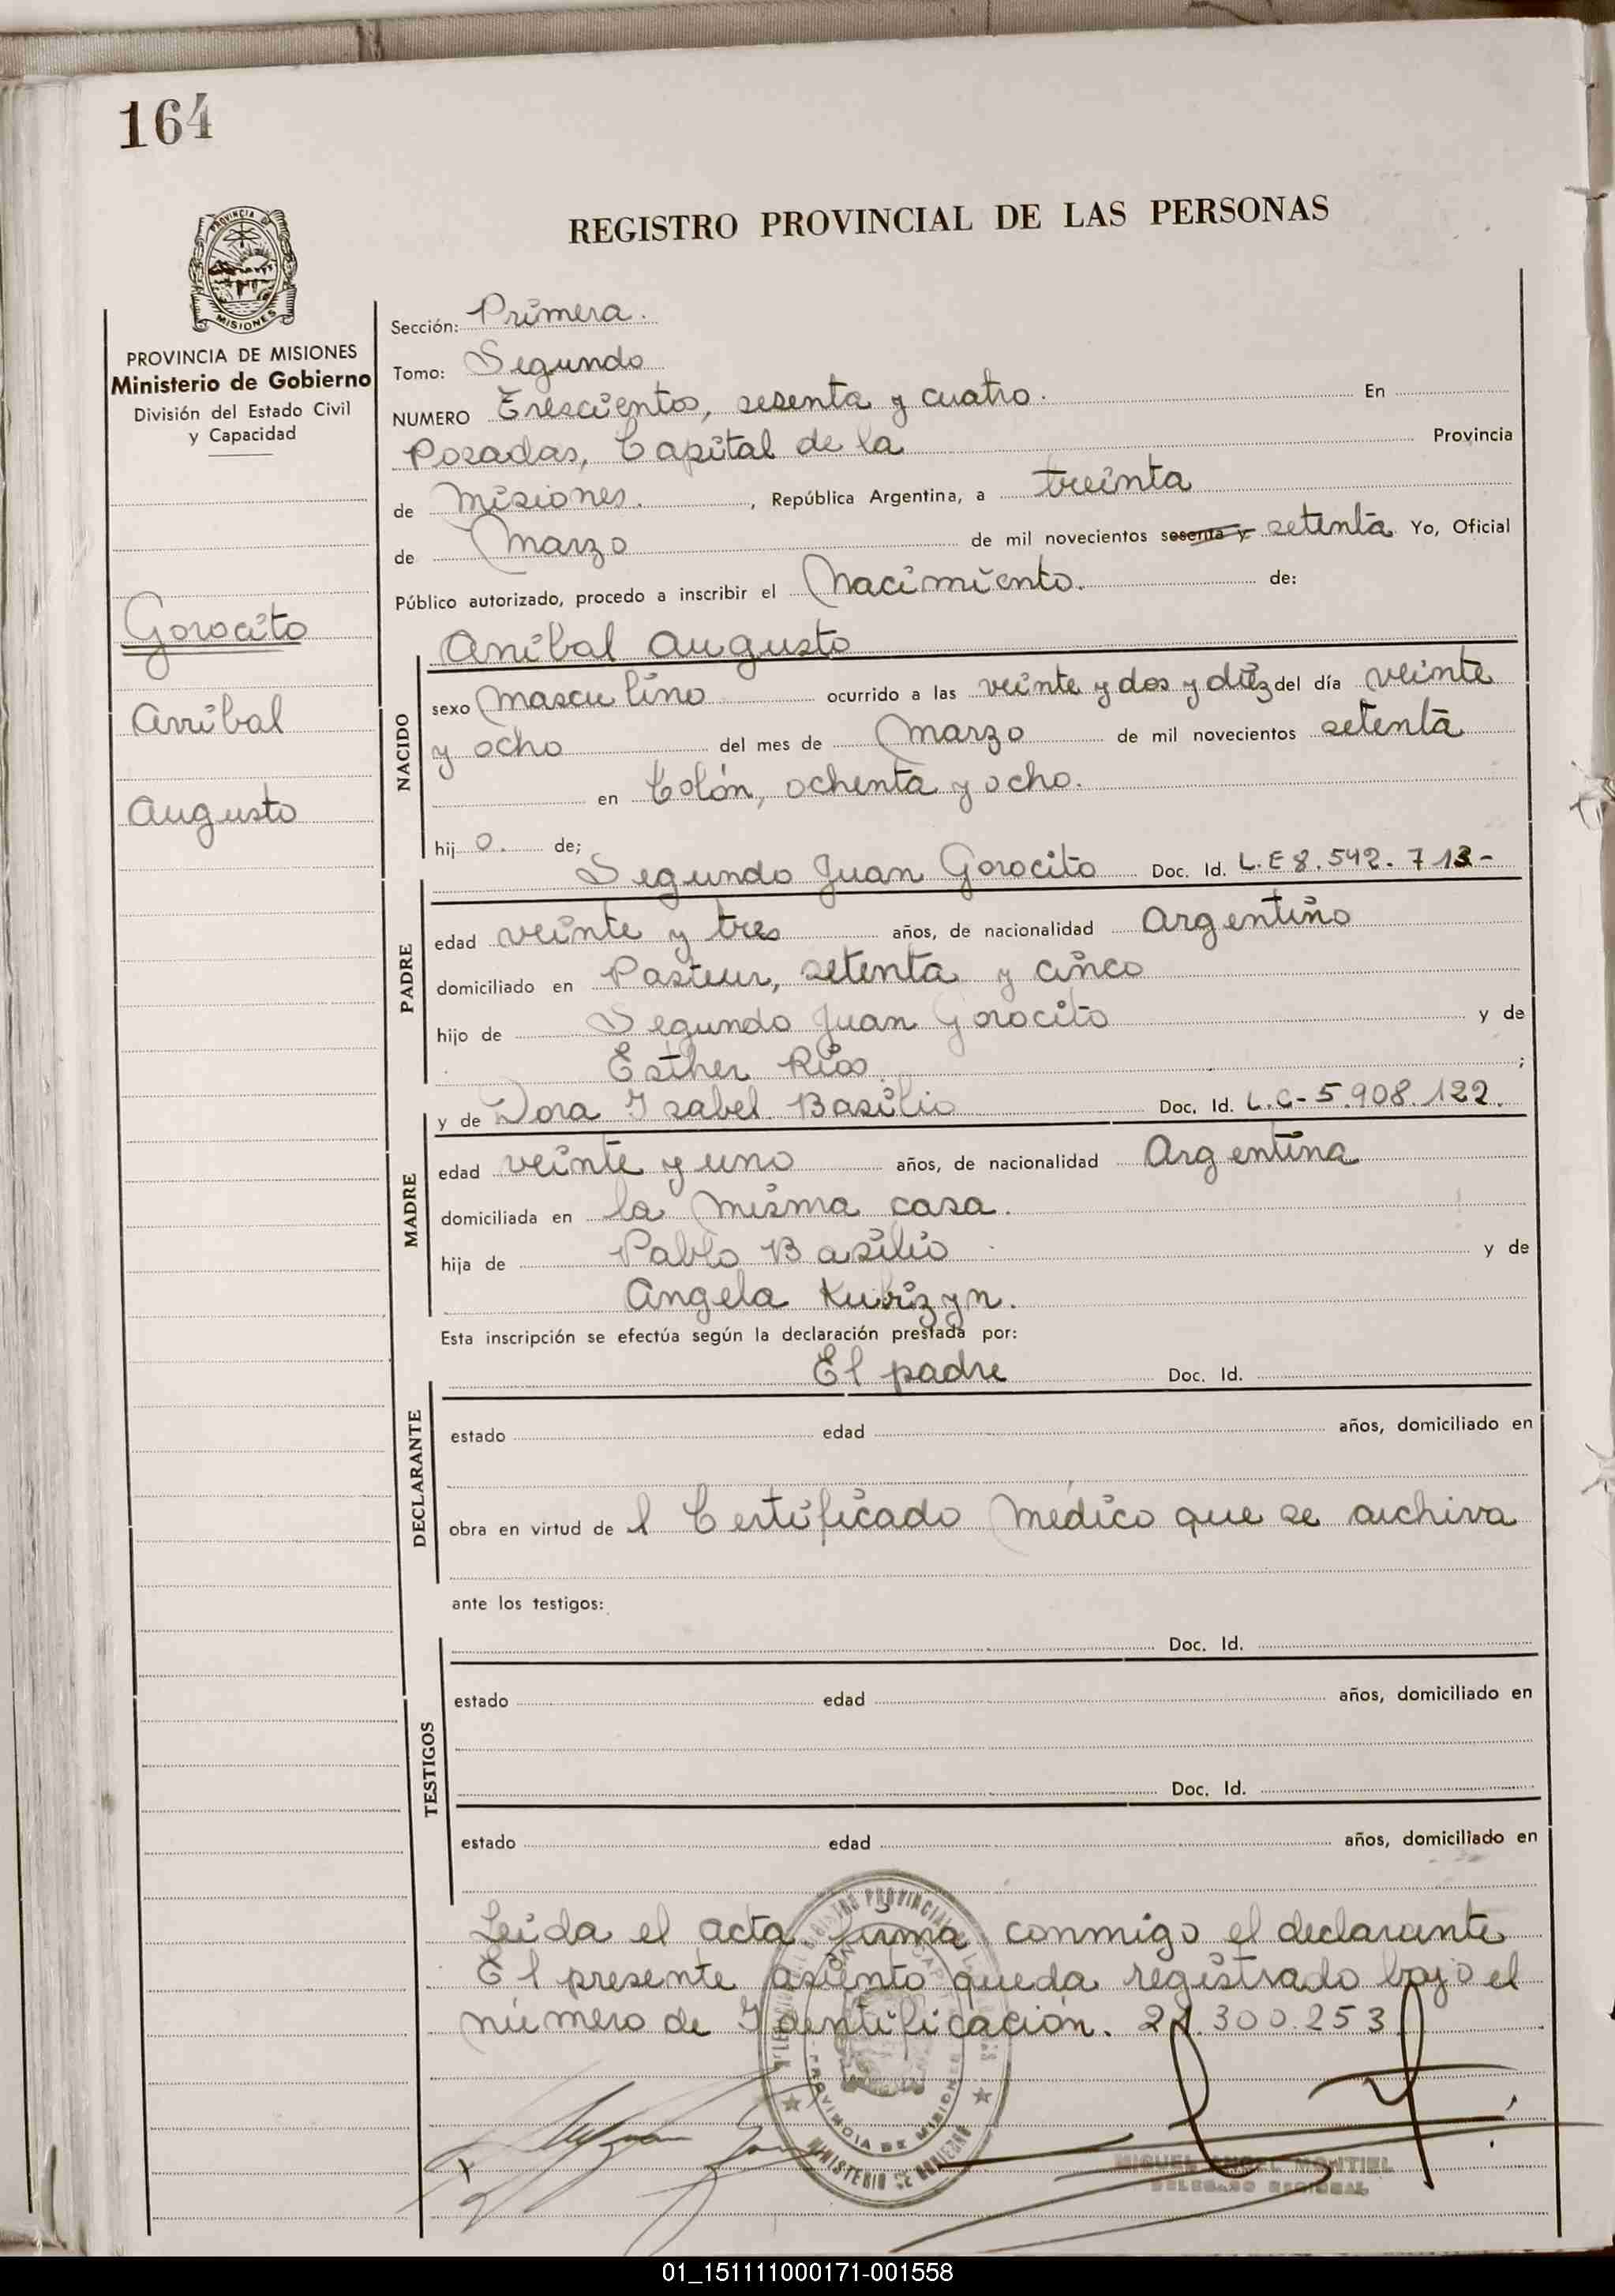 164
REGISTRO PROVINCIAL DE LAS PERSONAS
PROVINCIA DE
MISIONES
PROVINCIA DE MISIONES
Ministerio de Gobierno
División del Estado Civil
y Capacidad
Gorocito
Anibal
Augusto
Sección: Primera.
Tomo: Segundo
NUMERO Trescientos, sesenta y cuatro. En
Posadas, Capital de la Provincia
de Misiones. , República Argentina, a treinta
de Marzo de mil novecientos sesenta y setenta Yo, Oficial
Público autorizado, procedo a inscribir el Nacimiento. de:
Anibal Augusto
NACIDO
sexo Masculino ocurrido a las veinte y dos y diez del día veinte
y ocho del mes de Marzo de mil novecientos setenta
en Colón, ochenta y ocho.
hij o. de;
Segundo Juan Gorocito Doc. Id. L.E 8.542.713-
PADRE
edad veinte y tres años, de nacionalidad Argentino
domiciliado en Pasteur, setenta y cinco
hijo de Segundo Juan Gorocito y de
Esther Rios ;
y de Dora Isabel Basilio Doc. Id. L.C-5.908.122.
MADRE
edad veinte y uno años, de nacionalidad Argentina
domiciliada en la misma casa.
hija de Pablo Basilio y de
Angela Kubizyn.
Esta inscripción se efectúa según la declaración prestada por:
El padre Doc. Id.
DECLARANTE
estado edad años, domiciliado en
obra en virtud de l Certificado Médico que se archiva
ante los testigos:
Doc. Id.
TESTIGOS
estado edad años, domiciliado en
Doc. Id.
estado edad años, domiciliado en
Leida el acta firma conmigo el declarante
El presente asiento queda registrado bajo el
número de Identificación. 21.300.253
REGISTRO PROVINCIAL
PROVINCIA DE MISIONES
MINISTERIO DE GOBIERNO
MIGUEL ANGEL MONTIEL
DELEGADO REGIONAL
01_151111000171-001558